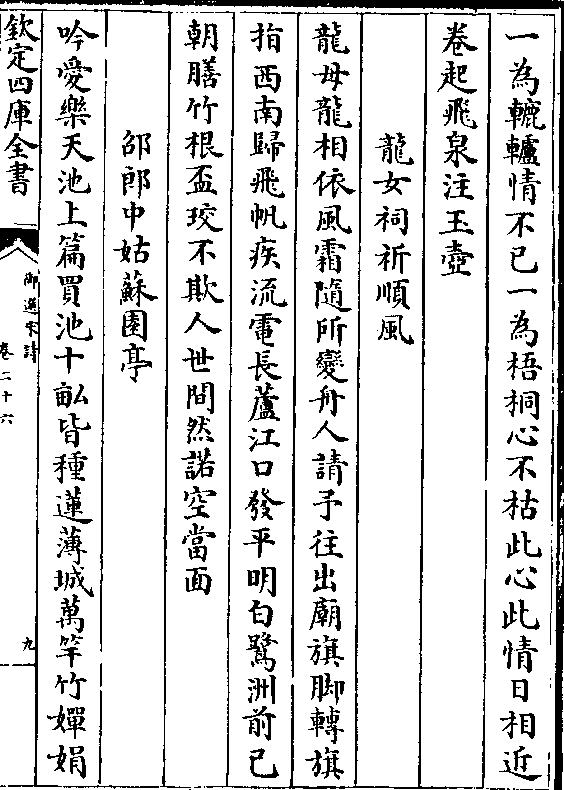 一為轆轤情不已一為梧桐心不枯此心此情日相近
卷起飛泉注玉壺
龍女祠祈順風
龍母龍相依風霜隨所變舟人請予往出廟旗脚轉旗
指西南歸飛帆疾流電長蘆江口發平明白鷺洲前已
朝膳竹根盃珓不欺人世間然諾空當面
邵郎中姑蘇園亭
吟愛樂天池上篇買池十畝皆種蓮薄城萬竿竹嬋娟
欽定四庫全書
御選宋詩
卷二十六
九